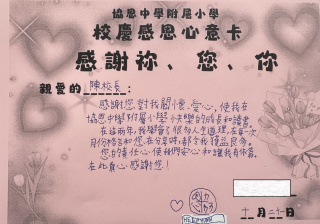 協恩中學附屬小學
校慶感恩心意卡
感謝祢、您、你
親愛的 陳校長：
感謝您對我關懷、愛心，使我在
協恩中學附屬小學小快樂的成長和讀書。
在這兩年，我學會了很多人生道理，在每一次
月份禱告和您在分享時，都令我獲益良多。
您的責任心使我們安心和讓我有依靠。
在此衷心感謝您！
十一月二十一日